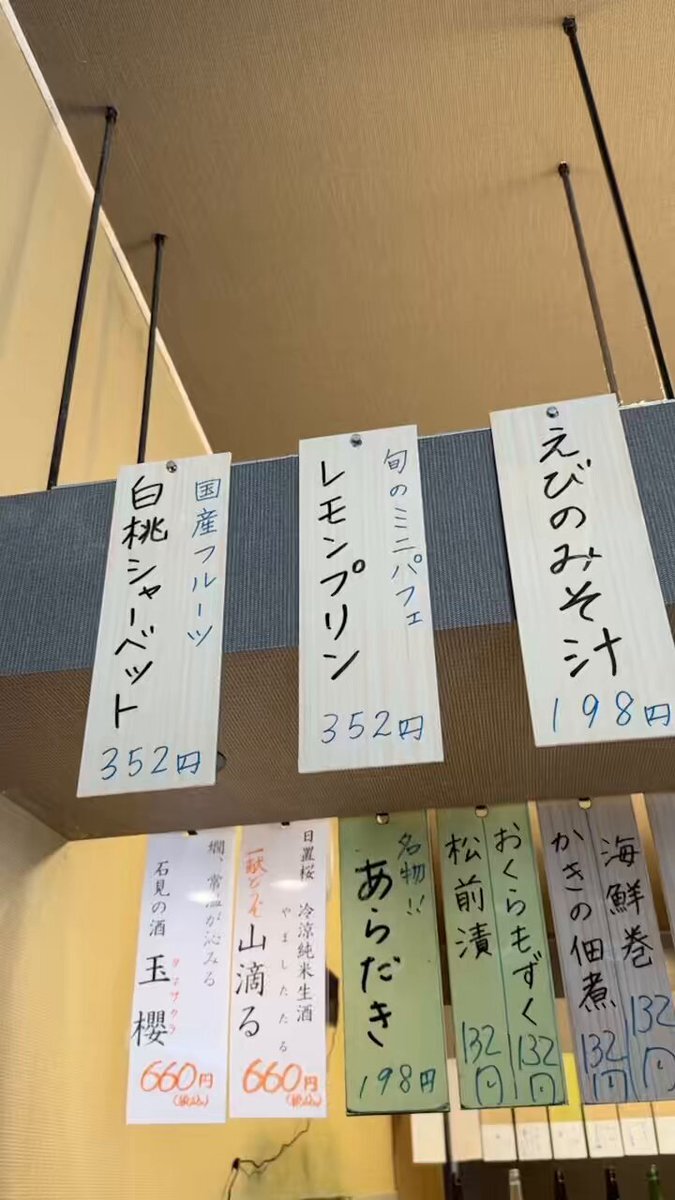 えびのみそ汁
198円
旬のミニパフェ
レモンプリン
352円
国産フルーツ
白桃シャーベット
352円
海鮮巻
132円
かきの佃煮
132円
おくらもずく
132円
松前漬
132円
名物!!
あらだき
198円
日置桜 冷涼純米生酒
やましたたる
一献どうぞ
山滴る
660円
(税込)
燗、常温が沁みる
石見の酒 玉櫻
タマザクラ
660円
(税込)